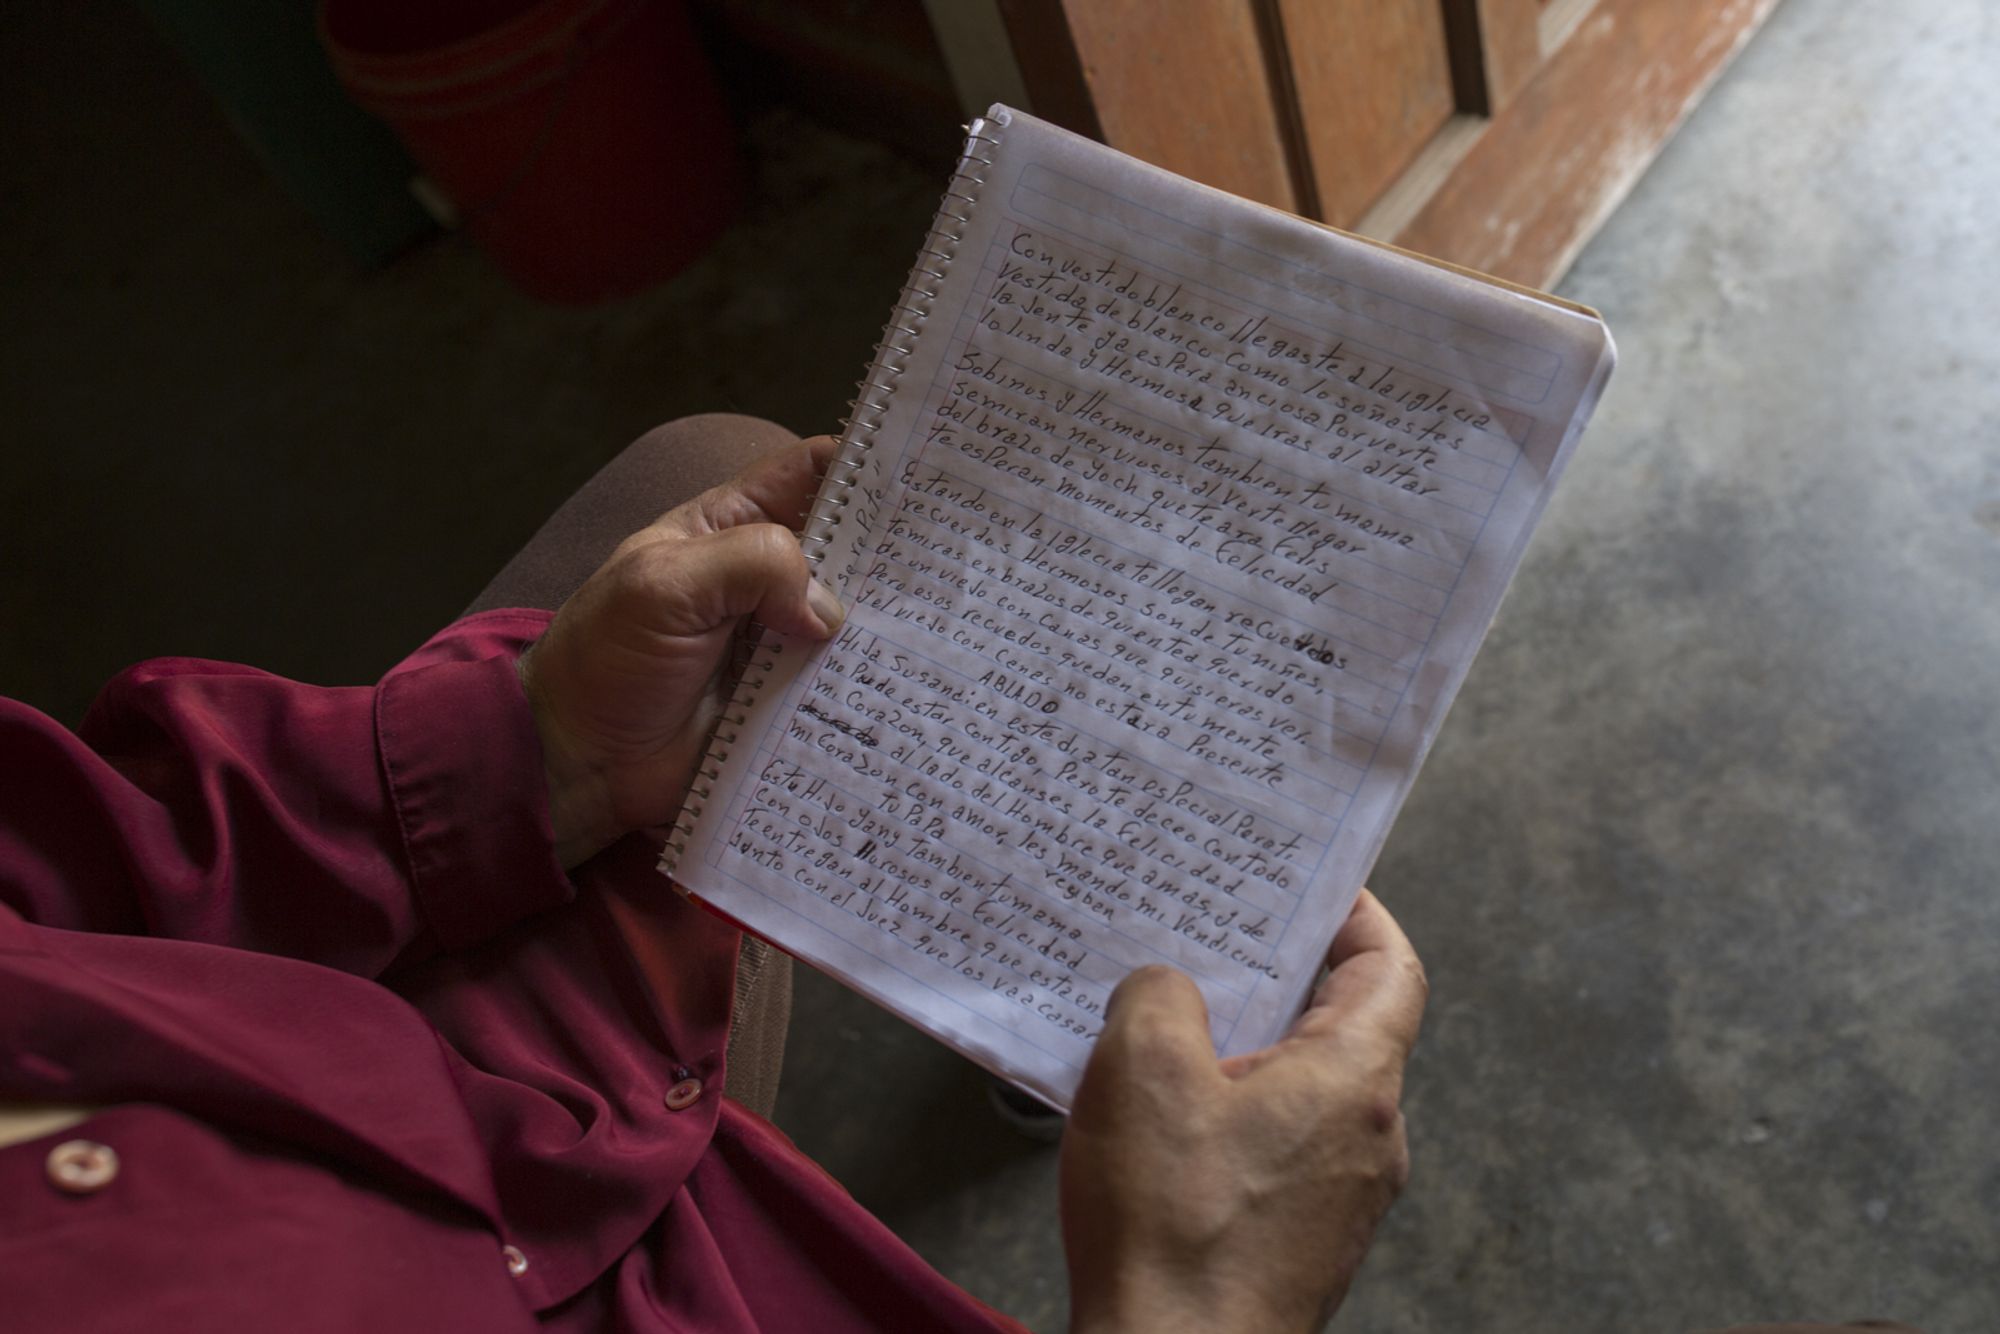 Con vestido blanco llegaste a la iglecia
Vestida de blanco Como lo soñastes
la Jente ya espera anciosa Por verte
lo linda y Hermosa que iras al altar
Sobinos y Hermanos tambien tu mama
se miran nerviosos al verte llegar
del brazo de yoch que te ara Felis
te esperan momentos de Felicidad
Estando en la iglecia te llegan recuerdos
recuerdos Hermosos son de tu niñes,
te miras en brazos de quien tea querido
de un viejo con canas que quisieras ver.
Pero esos recuedos quedan en tu mente
y el viejo con Canas no estara Presente
se repite"
ABLADO
Hija Susana: en este dia tan especial Para ti
no Puede estar contigo, Pero te deceo con todo
mi Corazon, que alcanses la Felicidad
al lado del Hombre que amas, y de
mi Corazon con amor, les mando mi Vendicion.
tu PaPa reyben
Esta Hijo yany tambien tu mama
con ojos llurosos de Felicidad
te entregan al Hombre que esta en
Junto con el Juez que los va a casar